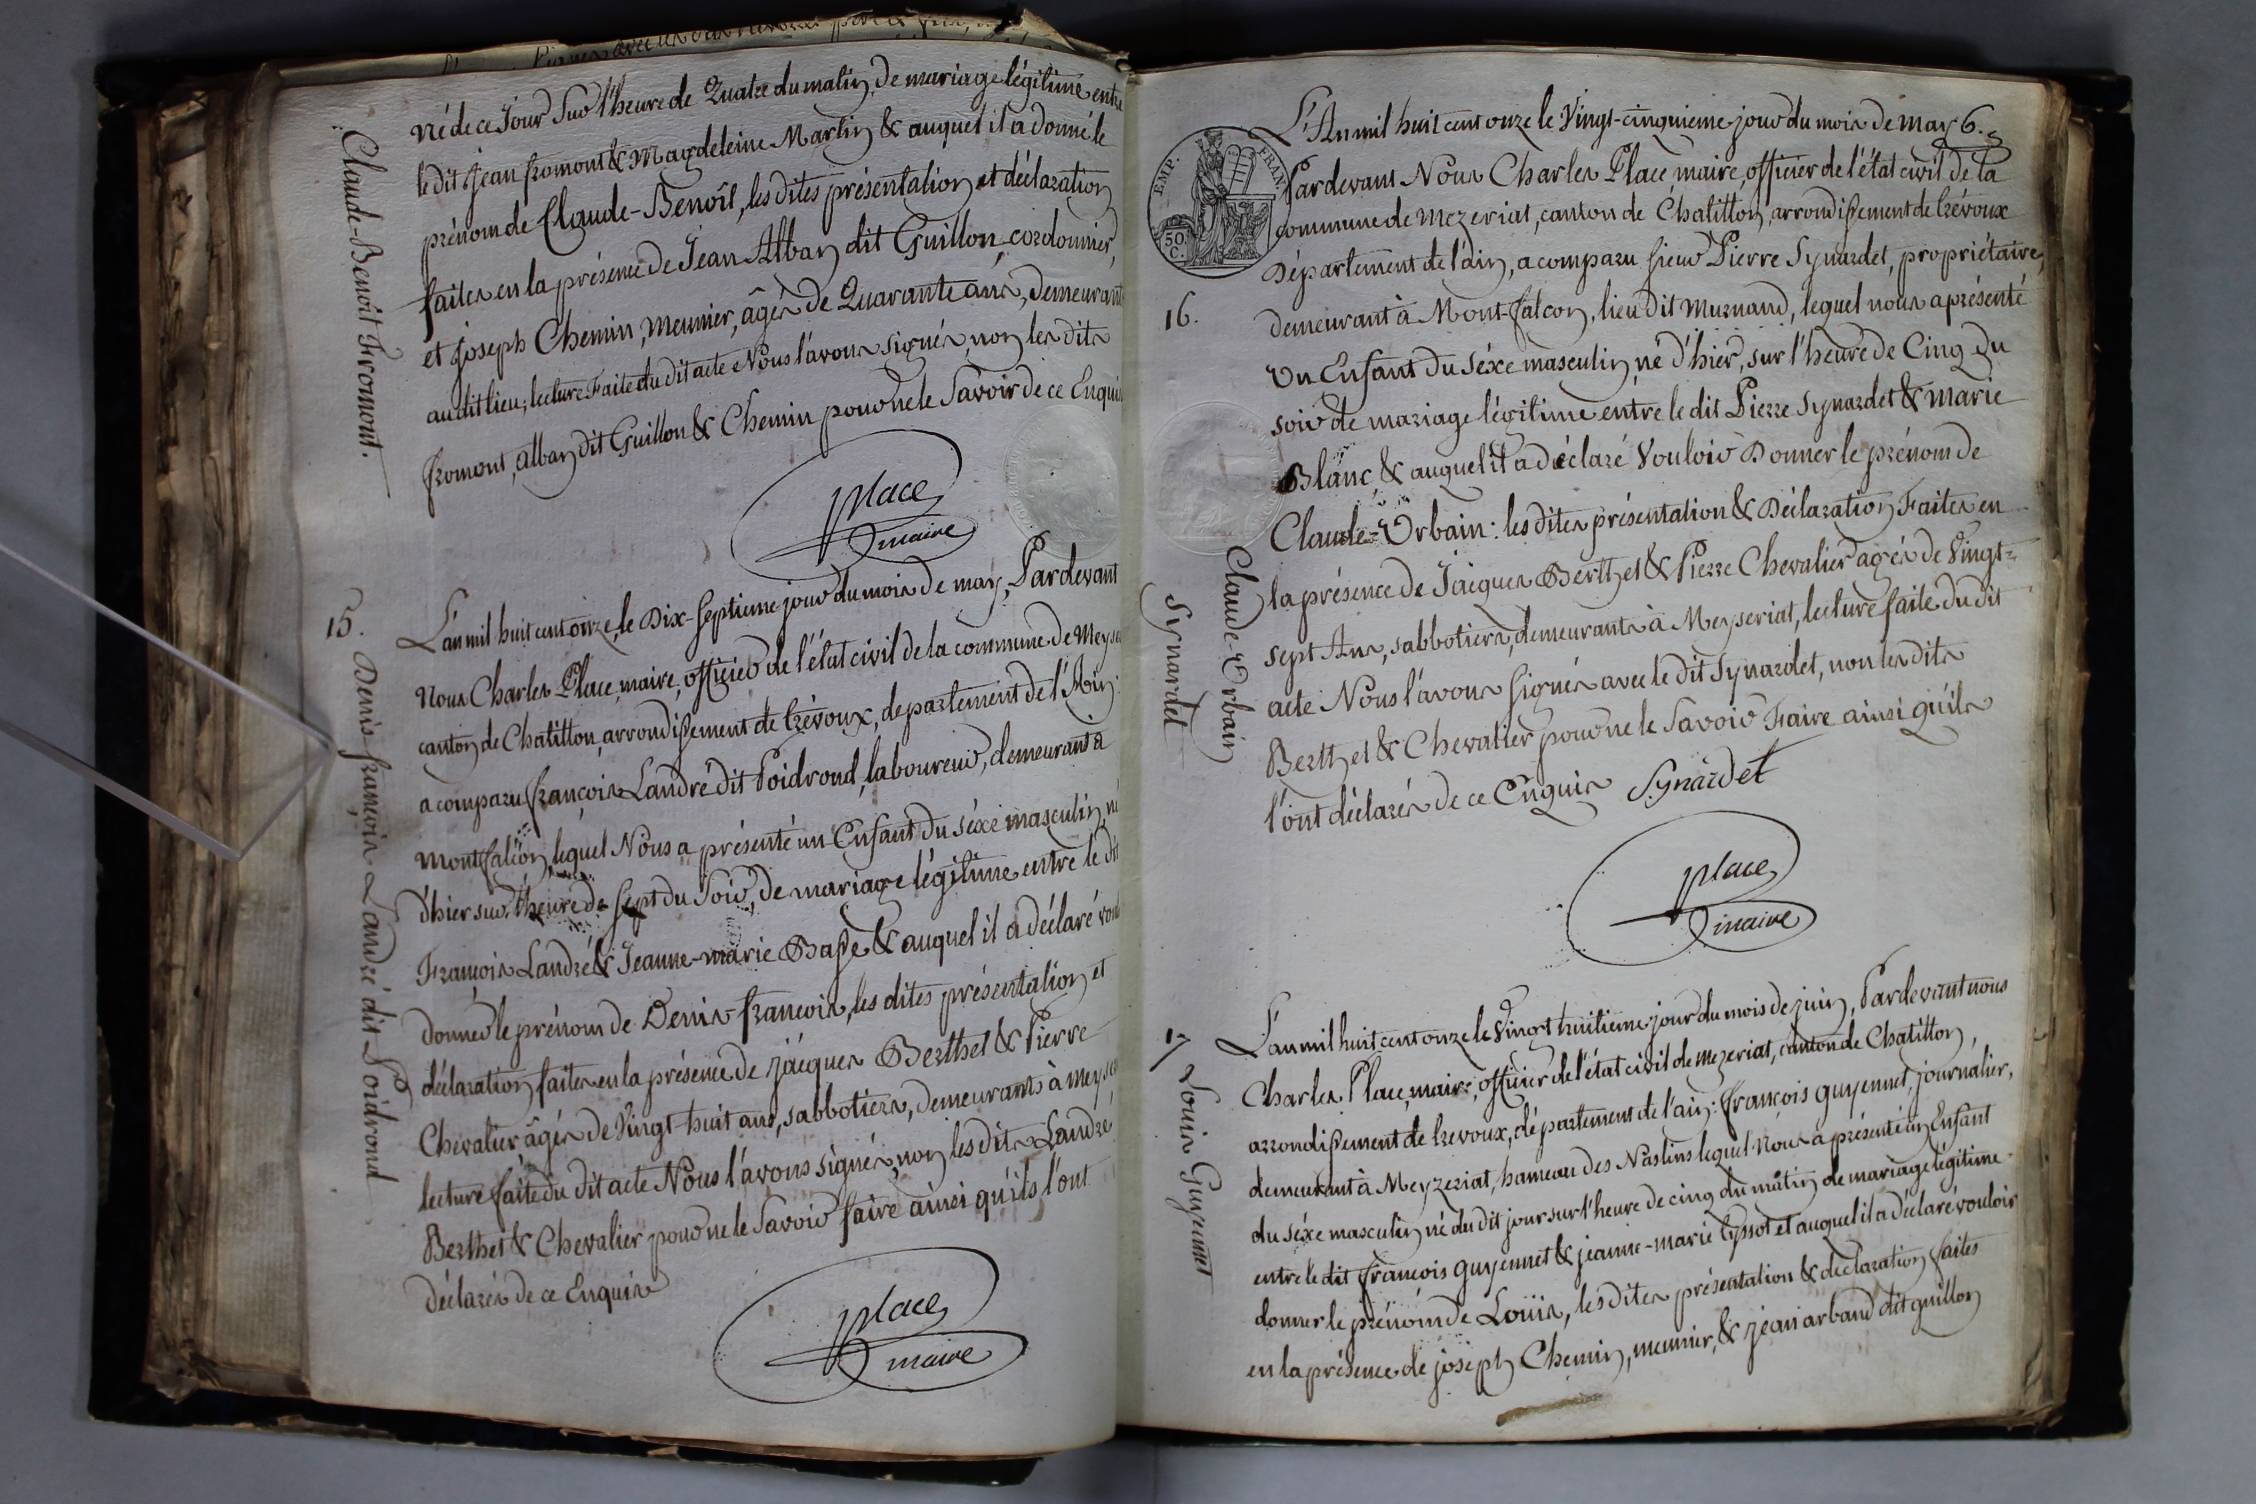 né de ce jour sur l'heure de Quatre du matin, de mariage légitime entre
le dit Jean fromont & Magdeleine Martin & auquel il a donné le
prénom de Claude-Benoît, les dites présentation et déclaration
faites en la présence de Jean Alban dit Guillon, cordonnier,
et joseph Chemin, meunier, âgés de Quarante ans, demeurant
au dit lieu; lecture Faite du dit acte Nous l'avons signés, non les dits
fromont, alban dit Guillon & Chemin pour ne le Savoir de ce Enquis
Claude-Benoît Fromont.
place
maire
15.
Denis-françois Landré dit Poidrond
L'an mil huit cent onze, le Dix-Septieme jour du mois de may, Pardevant
Nous Charles Place, maire, officier de l'état civil de la commune de
canton de Chatillon, arrondissement de trévoux, departement de l'Ain:
a comparu françois Landré dit Poidrond, laboureur, demeurant à
Montfalcon, lequel Nous a présenté un Enfant du séxe masculin, né
d'hier sur l'heure de Sept du Soir, de mariage légitime entre le dit
François Landré & Jeanne-marie Basse & auquel il a déclaré
donner le prénom de Denis-françois, les dites présentation et
déclaration faites en la présence de jacques Berthet & Pierre
Chevalier, âgés de Vingt-huit ans, sabbotiers, demeurants à
lecture faite du dit acte Nous l'avons signés, non les dits Landré
Berthet & Chevalier pour ne le Savoir faire ainsi qu'ils l'ont
déclarés de ce Enquis
place
maire
EMP. FRAN.
50.
C.
L'An mil huit cent onze le Vingt-cinquieme jour du mois de may 6.
Pardevant Nous Charles Place maire, officier de l'état civil de la
commune de Mezeriat, canton de Chatillon, arrondissement de trévoux
Département de l'ain, a comparu sieur Pierre Synardet, propriétaire,
demeurant à Mont-falcon, lieu dit Murnand, lequel nous a présenté
Un Enfant du séxe masculin, né d'hier, sur l'heure de Cinq du
soir de mariage légitime entre le dit Pierre Synardet & Marie
Blanc & auquel il a déclaré Vouloir Donner le prénom de
Claude-Urbain: les dites présentation & Déclaration Faites en
la présence de Jacques Berthet & Pierre Chevalier âgés de Vingt-
sept Ans, sabbotiers, demeurants à Meyseriat, lecture faite du dit
acte Nous l'avons Signés avec le dit Synardet, non les dits
Berthet & Chevalier pour ne le Savoir Faire ainsi qu'ils
l'ont déclarés de ce Enquis Synardet
16.
Claude-Urbain
Synardet
place
maire
17
Louis Guyennet
L'an mil huit cent onze le Vingt huitieme jour du mois de juin, Pardevant nous
Charles Place, maire, officier de l'état civil de mezeriat, canton de Chatillon,
arrondissement de trevoux, département de l'ain: françois guyennet, journalier,
demeurant à Meyzeriat, hameau des Naslins lequel Nous a présenté un Enfant
du séxe masculin né du dit jour sur l'heure de cinq du matin de mariage légitime
entre le dit françois guyennet & jeanne-marie tyssot et auquel il a déclaré vouloir
donner le prénom de Louis, les dites présentation & déclaration faites
en la présence de joseph Chemin, meunier, & jean arband dit guillon